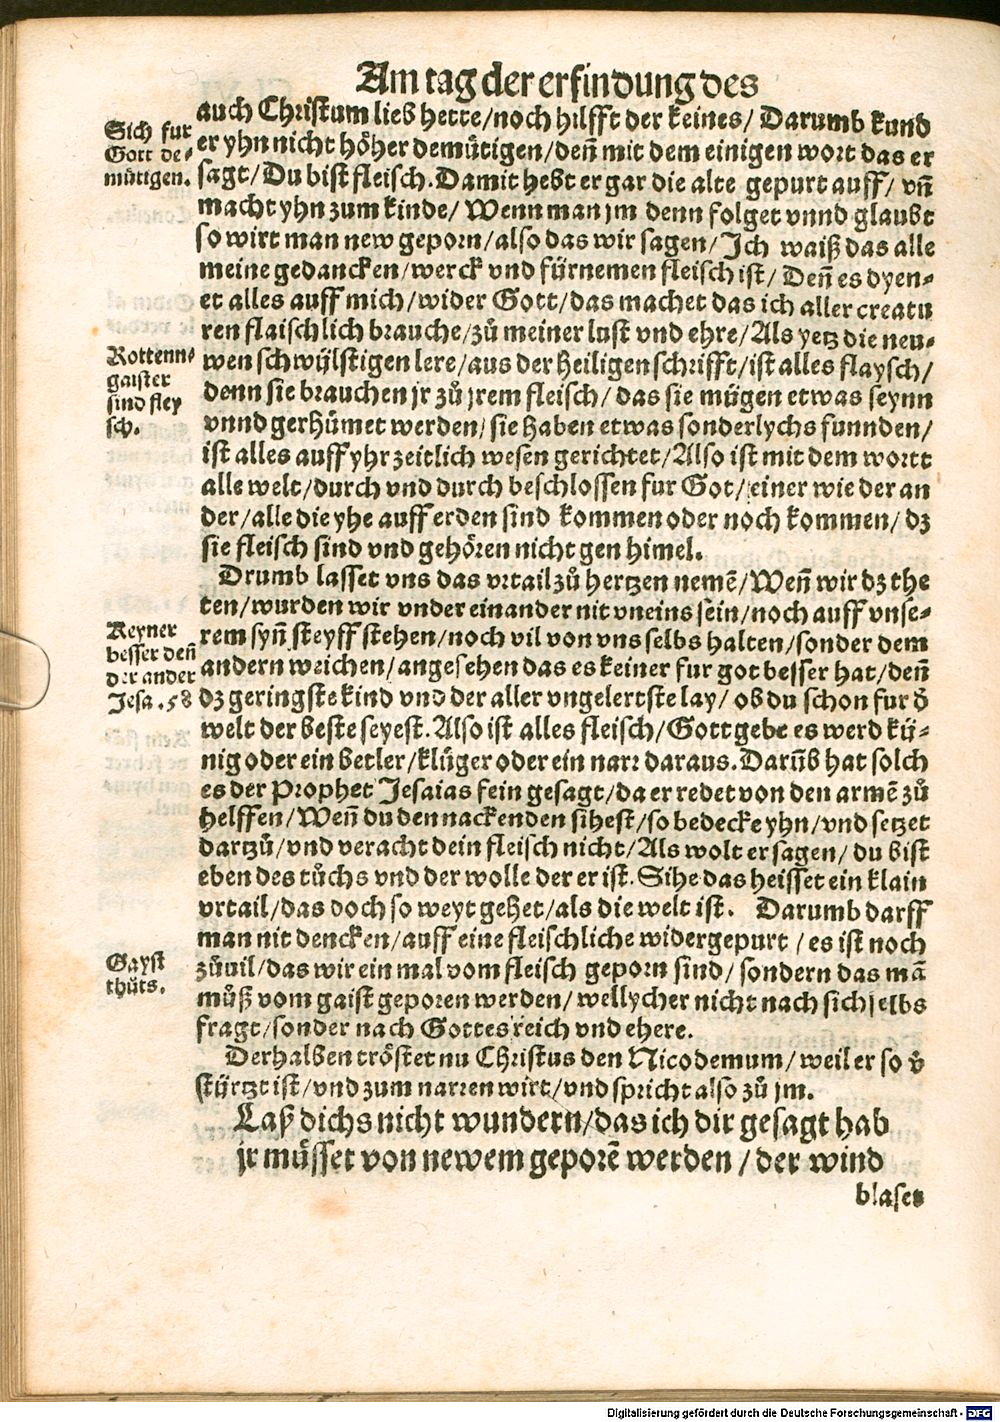 Am tag der erfindung des
auch Christum lieb hette/noch hilfft der keines/ Darumb kund
er yhn nicht höher demütigen/deñ mit dem einigen wort das er
sagt/Du bist fleisch.Damit hebt er gar die alte gepurt auff/ vñ
macht yhn zum kinde/ Wenn man jm denn folget vnnd glaubt
so wirt man new geporn/also das wir sagen/Ich waiß das alle
meine gedancken/werck vnd fürnemen fleisch ist/ Deñ es dyen-
et alles auff mich/wider Gott/das machet das ich aller creatu
ren flaischlich brauche/zů meiner lust vnd ehre/Als yetz die neu-
wen schwülstigen lere/aus der heiligen schrifft/ist alles flaysch/
denn sie brauchen jr zů jrem fleisch/ das sie mügen etwas seynn
vnnd gerhümet werden/sie haben etwas sonderlychs funnden/
ist alles auff yhr zeitlich wesen gerichtet/Also ist mit dem wortt
alle welt/durch vnd durch beschlossen fur Got/einer wie der an
der/alle die yhe auff erden sind kommen oder noch kommen/ dz
sie fleisch sind vnd gehören nicht gen himel.
Drumb lasset vns das vrtail zů hertzen nemē/Weñ wir dz the
ten/wurden wir vnder einander nit vneins sein/noch auff vnse-
rem syñ steyff stehen/noch vil von vns selbs halten/sonder dem
andern weichen/angesehen das es keiner fur got besser hat/deñ
dz geringste kind vnd der aller vngelertste lay/ ob du schon fur d̄
welt der beste seyest.Also ist alles fleisch/Gott gebe es werd kü-
nig oder ein betler/klüger oder ein narr daraus.Darūb hat solch
es der Prophet Jesaias fein gesagt/da er redet von den armē zů
helffen/Weñ du den nackenden sihest/so bedecke yhn/vnd setzet
dartzů/vnd veracht dein fleisch nicht/Als wolt er sagen/ du bist
eben des tůchs vnd der wolle der er ist.Sihe das heisset ein klain
vrtail/das doch so weyt gehet/als die welt ist. Darumb darff
man nit dencken/auff eine fleischliche widergepurt/es ist noch
zůuil/das wir ein mal vom fleisch geporn sind/ sondern das mā
můß vom gaist geporen werden/wellycher nicht nach sich selbs
fragt/sonder nach Gottes reich vnd ehere.
Derhalben tröstet nu Christus den Nicodemum/weil er so v̄
stürtzt ist/vnd zum narren wirt/vnd spricht also zů jm.
Laß dichs nicht wundern/das ich dir gesagt hab
jr müsset von newem geporē werden/der wind
blaset
Sich fur
Gott de-
mütigen.
Rottenn-
gaister
sind fley
sch.
Keyner
besser deñ
der ander
Jesa.58
Gayst
thüts.
Digitalisierung gefördert durch die Deutsche Forschungsgemeinschaft - DFG